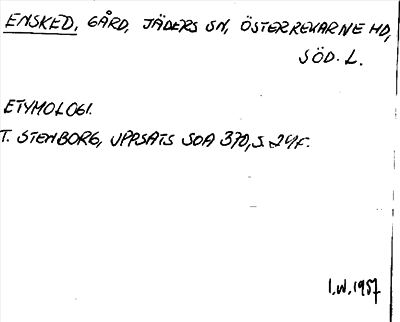 ENSKED, GÅRD, JÄDERS SN, ÖSTERREKARNE HD,
SÖD. L.
ETYMOLOGI.
T. STENBORG, UPPSATS SOA 370, S. 24F.
I.W. 1957